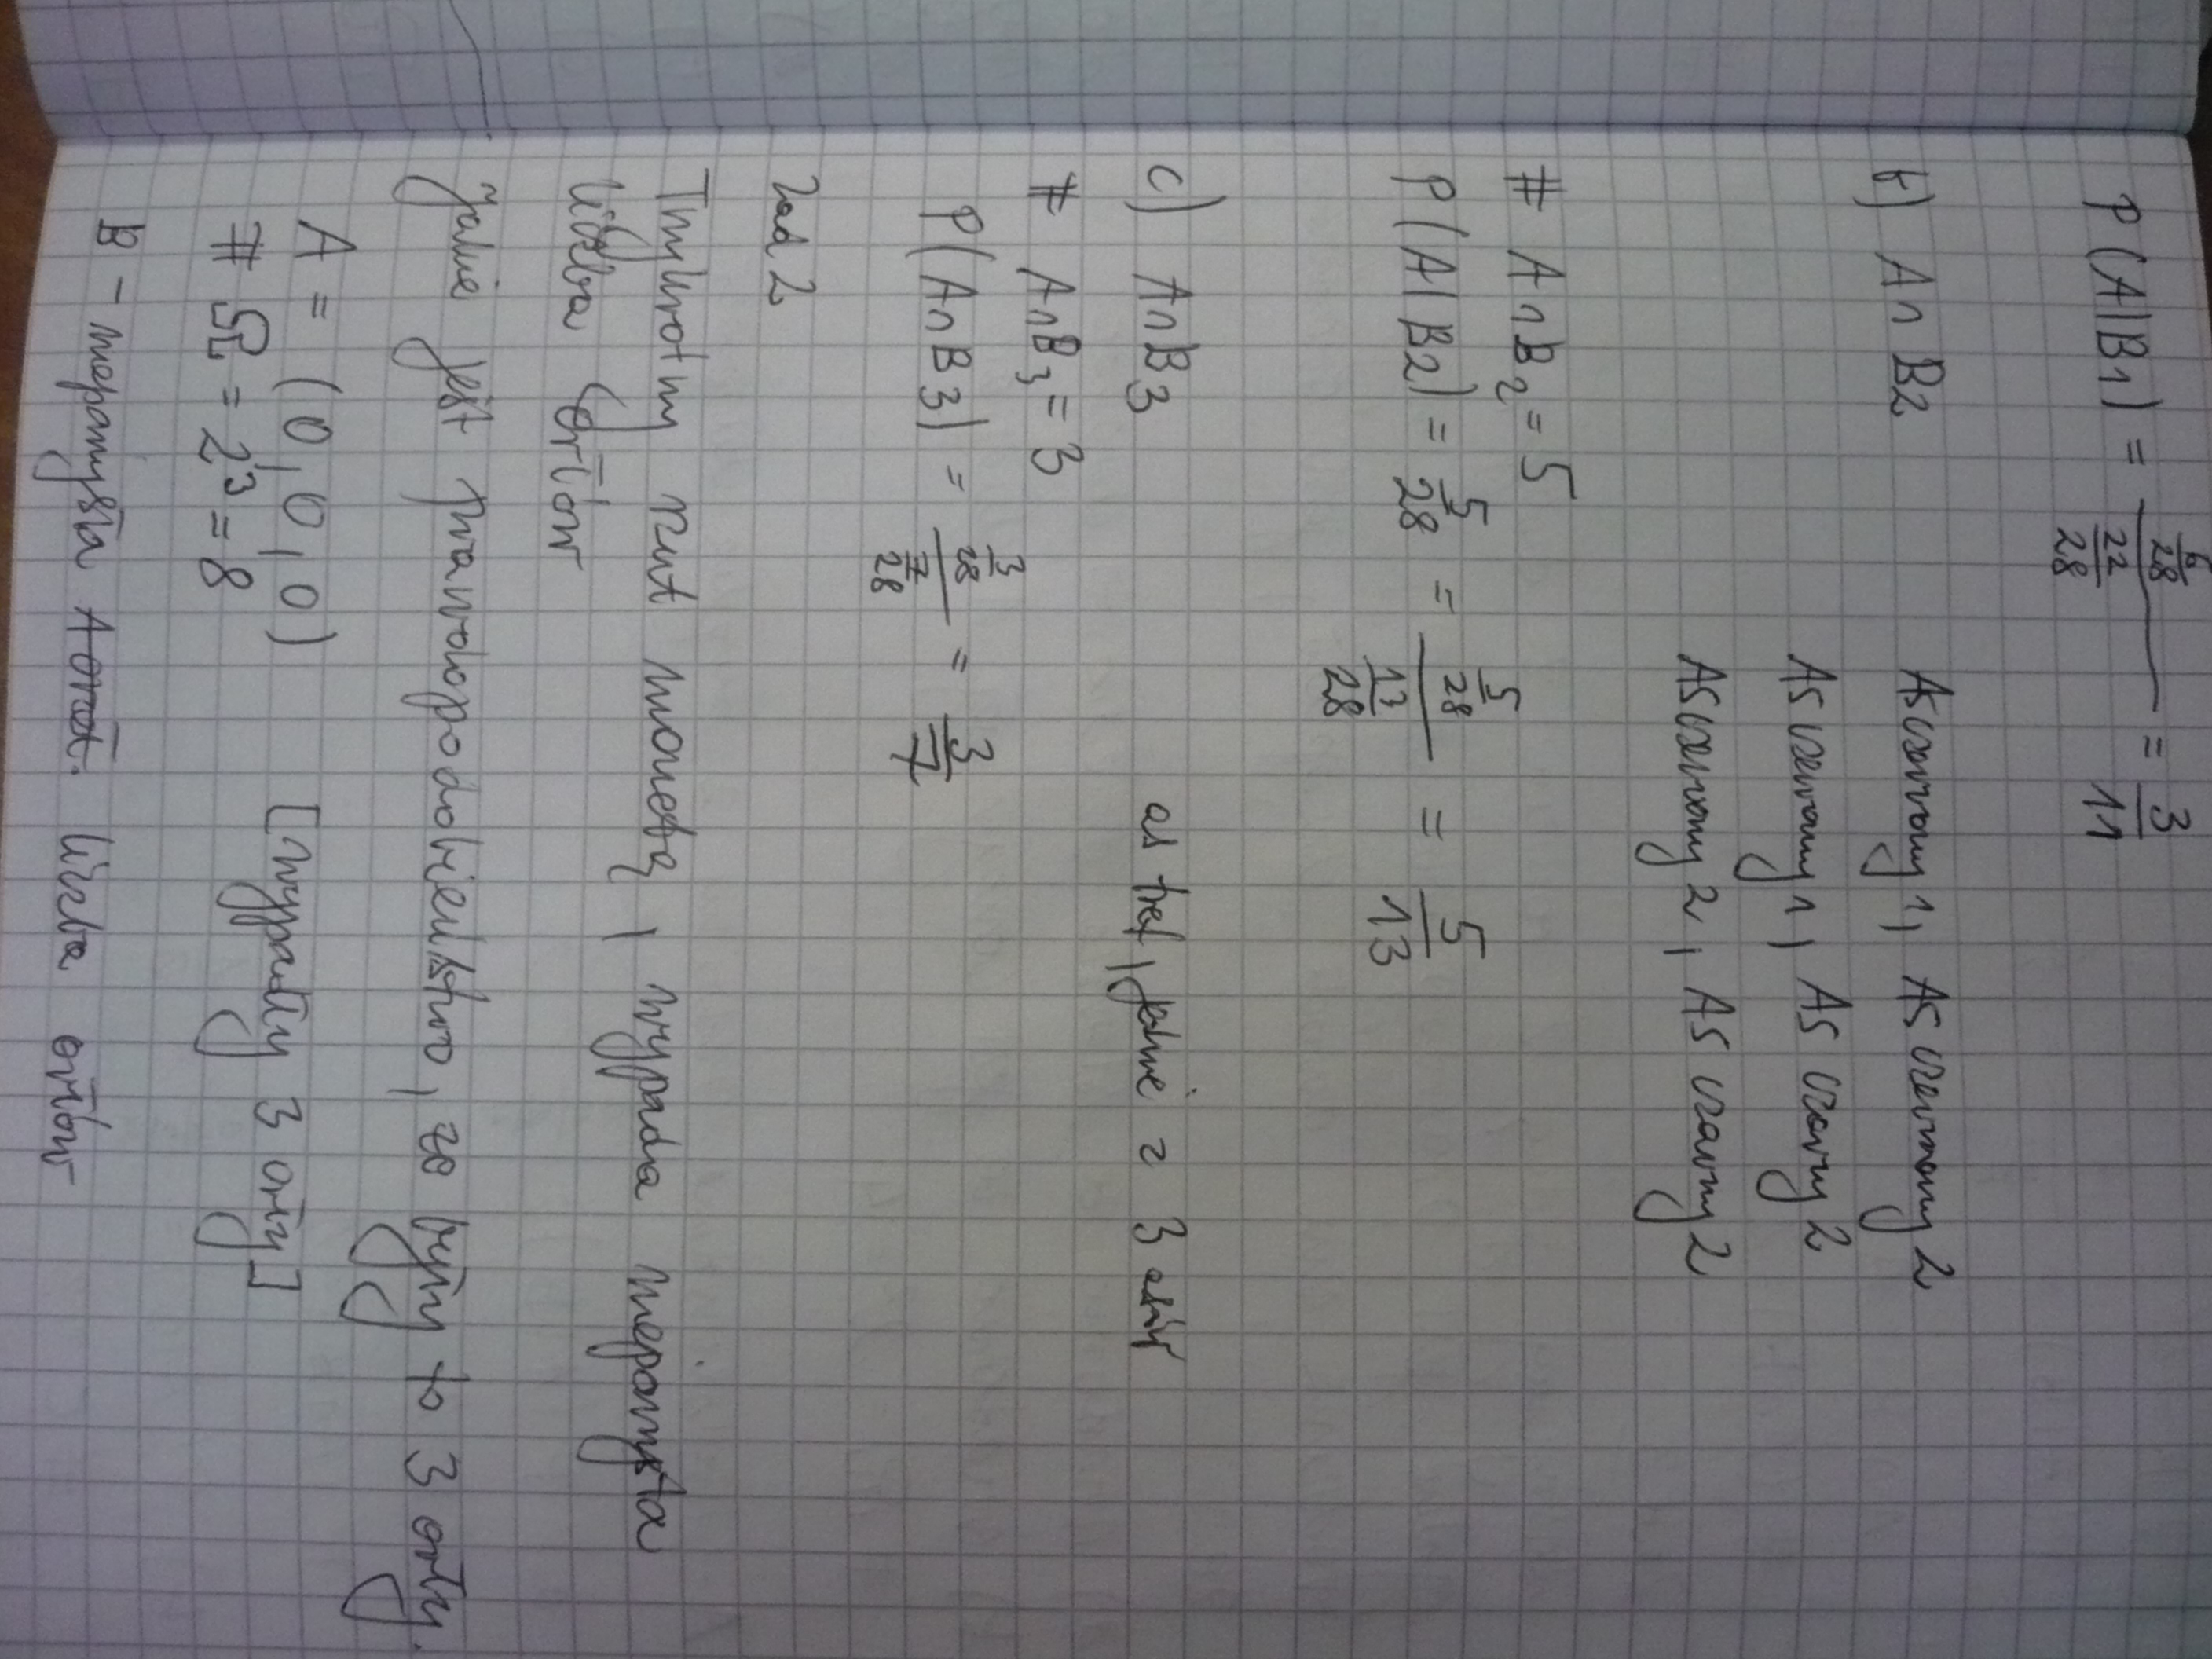 P(A|B1) = 6/28 / 22/28 = 3/11
b) A∩B2 As czerwony 1, As czerwony 2
As czerwony 1, As czarny 2
As czerwony 2, As czarny 2
# A∩B2 = 5
P(A|B2) = 5/28 = 5/28 / 13/28 = 5/13
c) A∩B3 as tref, jakie z 3 asów
# A∩B3 = 3
P(A∩B3) = 3/28 / 7/28 = 3/7
Zad 2
Trzykrotny rzut monetą, wypada nieparzysta
liczba orłów
Jakie jest prawdopodobieństwo, że były to 3 orły.
A = (O, O, O) [wypadły 3 orły]
# Ω = 2³ = 8
B - nieparzysta liczba orłów